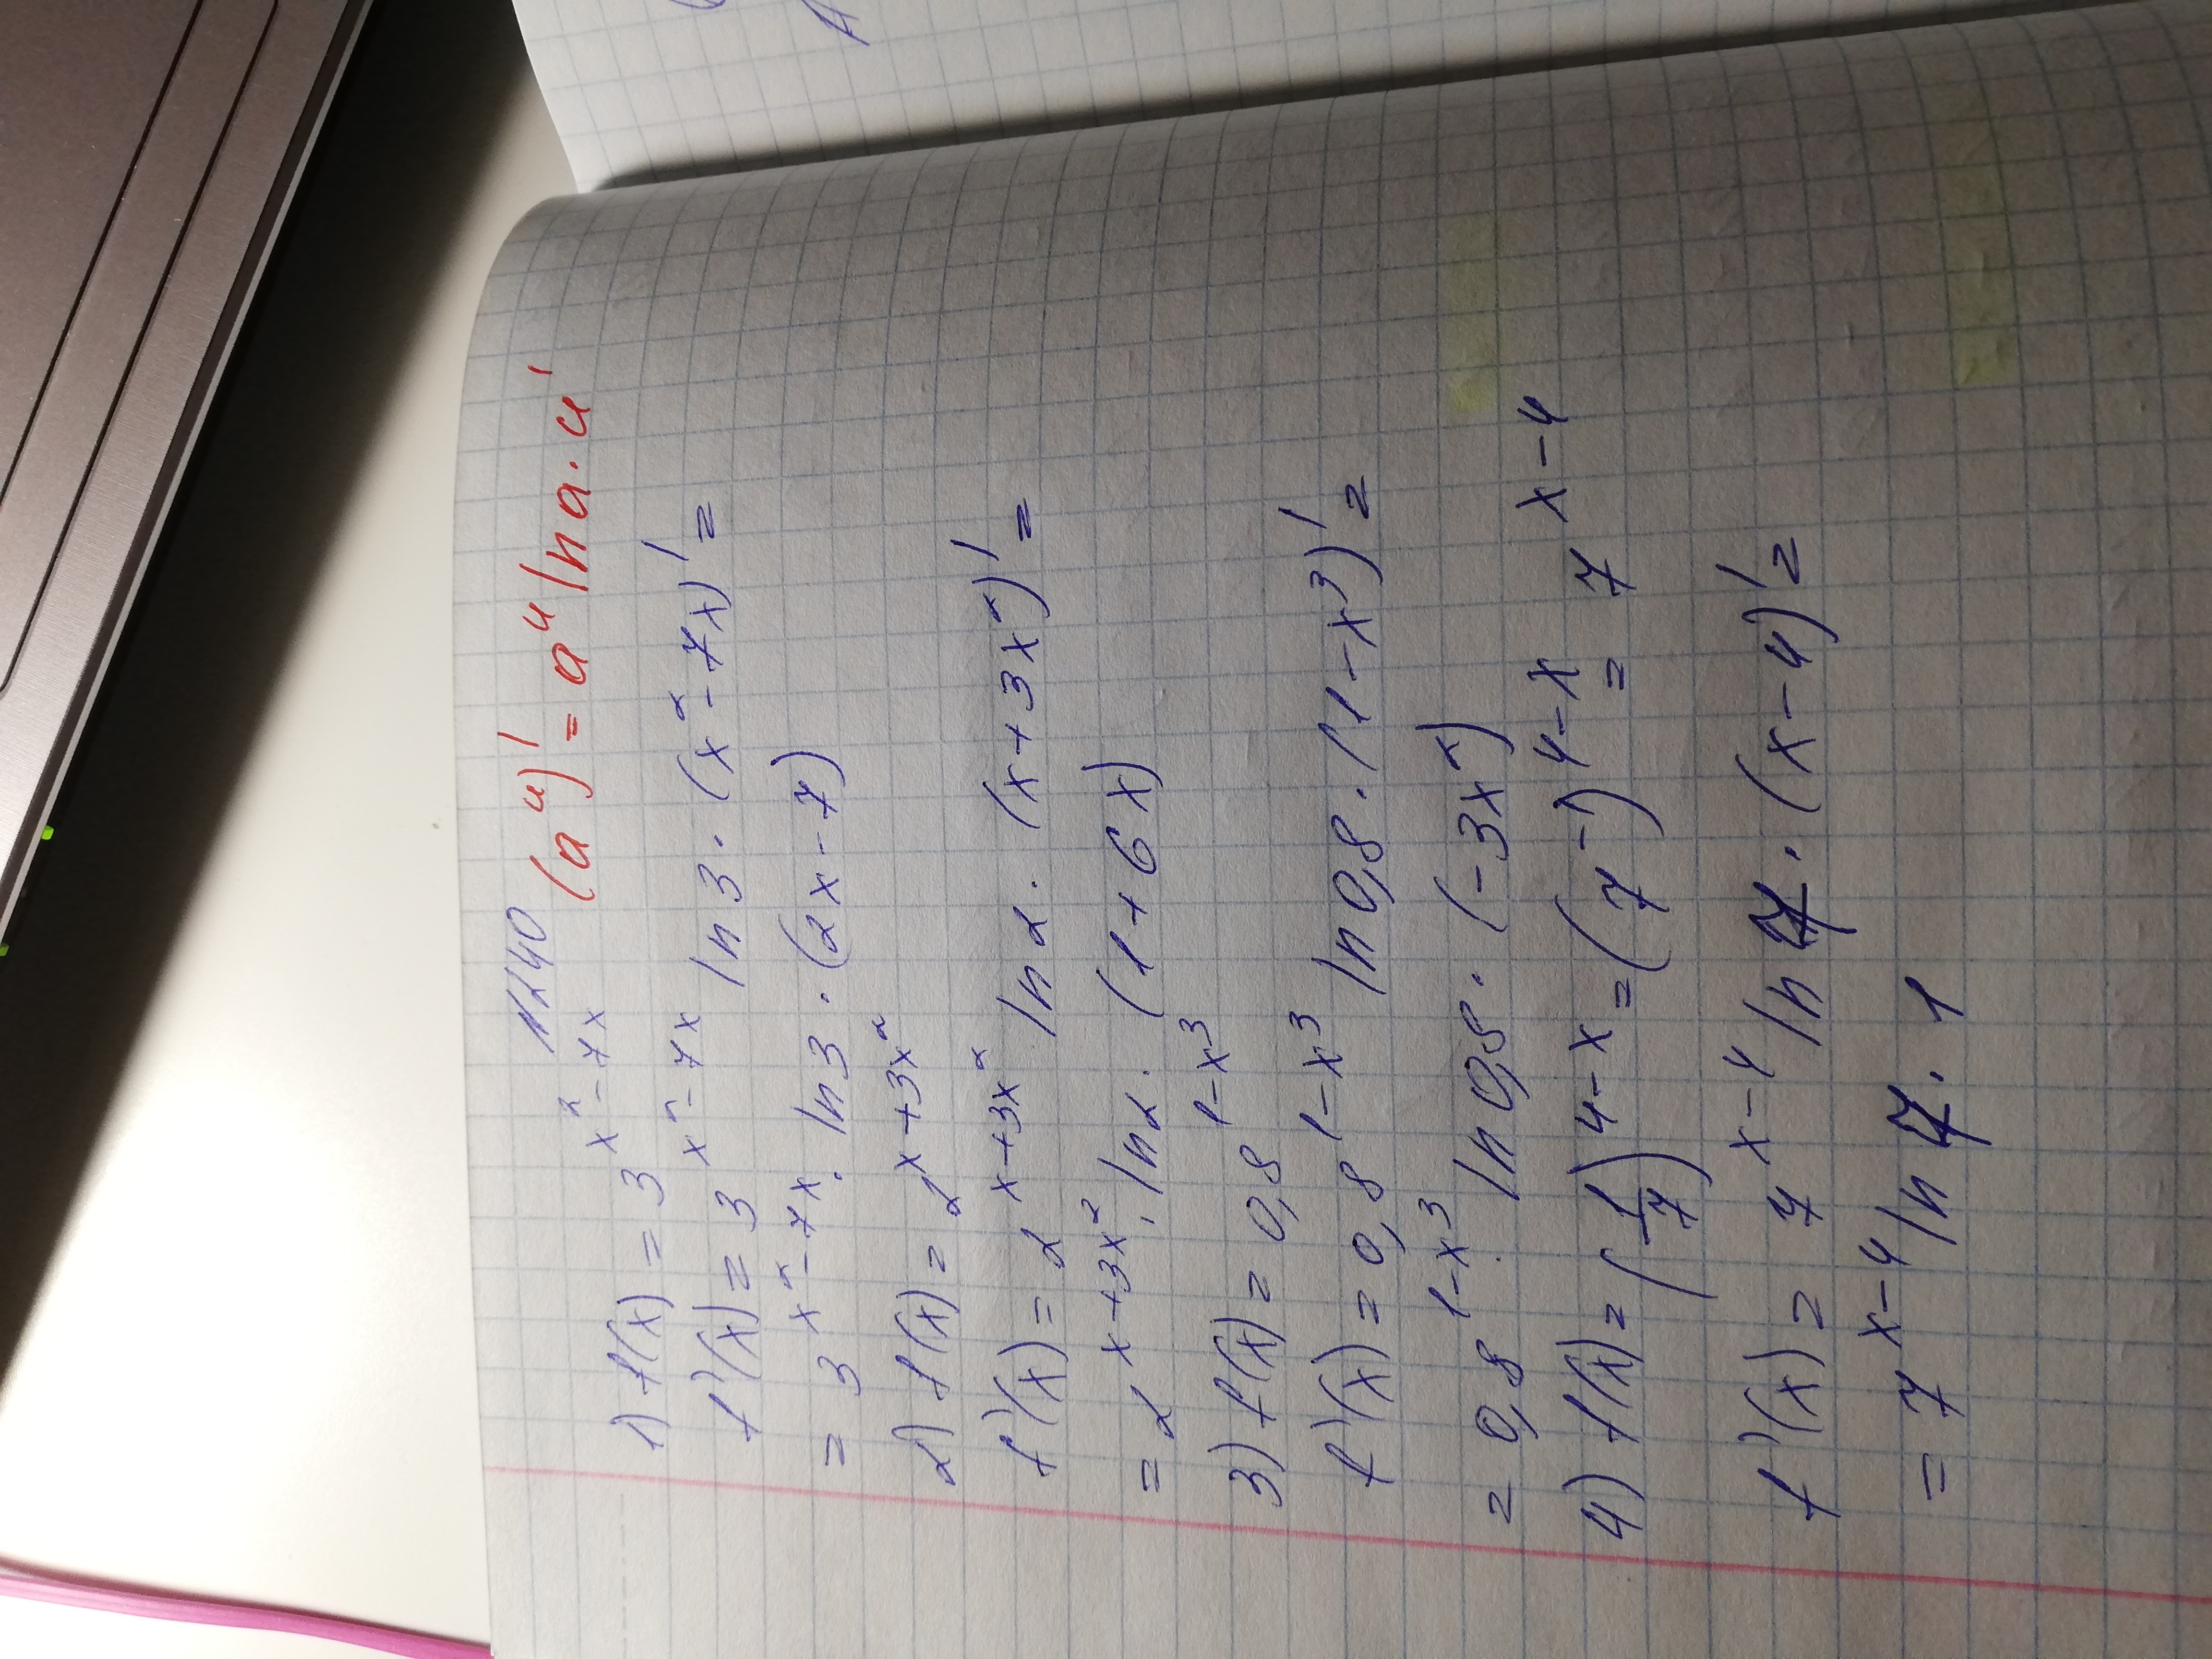 №240
(a^u)' = a^u ln a · u'
1) f(x) = 3^(x²-7x)
f'(x) = 3^(x²-7x) ln 3 · (x²-7x)' =
= 3^(x²-7x) · ln 3 · (2x-7)
2) f(x) = 2^(x+3x²)
f'(x) = 2^(x+3x²) ln 2 · (x+3x²)' =
= 2^(x+3x²) · ln 2 · (1+6x)
3) f(x) = 0,8^(1-x³)
f'(x) = 0,8^(1-x³) ln 0,8 · (1-x³)' =
= 0,8^(1-x³) · ln 0,8 · (-3x²)
4) f(x) = (1/7)^(4-x) = (7^-1)^(4-x) = 7^(x-4)
f'(x) = 7^(x-4) ln 7 · (x-4)' =
= 7^(x-4) ln 7 · 1